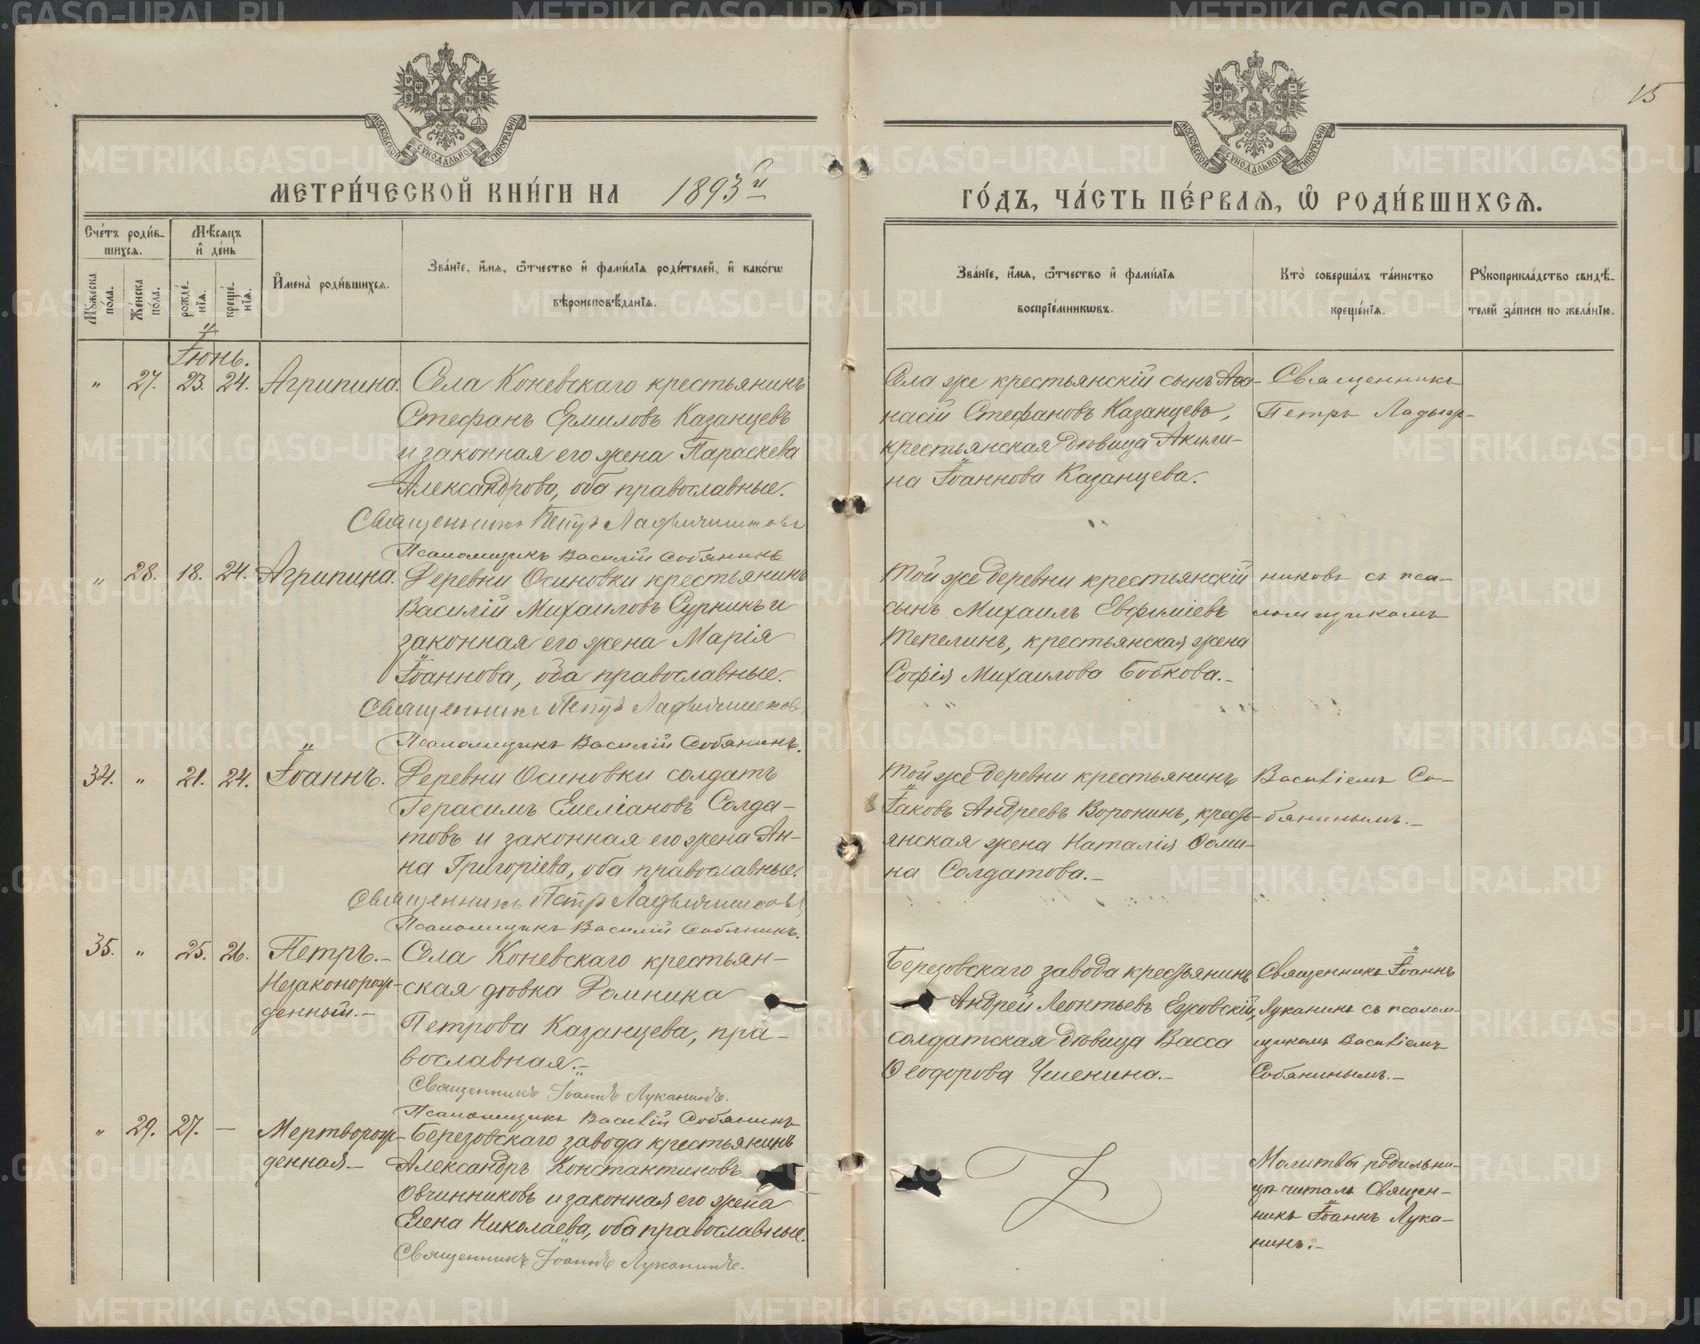 15
МЕТРИ́ЧЕСКОЙ КНИ́ГИ НА 1893й
ГО́ДЪ, ЧА́СТЬ ПЕ́РВАЯ, Ѿ РОДИ́ВШИХСЯ.
МОСКОВСКОЙ СѴНОДАЛЬНОЙ ТИПОГРАФІИ
МОСКОВСКОЙ СѴНОДАЛЬНОЙ ТИПОГРАФІИ
Сче́тъ роди́в-
шихся.
Мꙋ́жеска по́ла.
Же́нска по́ла.
Мѣ́сяцъ
и҆ де́нь
рожде́-
нїя.
креще́-
нїя.
И҆мена̀ роди́вшихся.
Зва́нїе, и҆́мя, ѻ҆́тчество и҆ фами́лїя роди́телей, и҆ како́гѡ
вѣроисповѣ́данїя.
Зва́нїе, и҆́мя, ѻ҆́тчество и҆ фами́лїя
воспрїе́мникѡвъ.
Кто̀ соверша́лъ та́инство
креще́нїя.
Рꙋкоприкла́дство свидѣ́-
телей за́писи по жела́нїю.
Іюнь.
" 27. 23. 24. Агрипина.
Села Коневскаго крестьянинъ
Стефанъ Ермиловъ Казанцевъ
и законная его жена Параскева
Александрова, оба православные.
Священникъ Петръ Ладыжниковъ
Псаломщикъ Василій Собянинъ
Села же крестьянскій сынъ Аѳа-
насій Стефановъ Казанцевъ,
крестьянская дѣвица Акили-
на Іоаннова Казанцева.
Священникъ
Петръ Ладыж-
" 28. 18. 24. Агрипина.
Деревни Осиновки крестьянинъ
Василій Михаиловъ Суринъ и
законная его жена Марія
Іоаннова, оба православные.
Священникъ Петръ Ладыжниковъ
Псаломщикъ Василій Собянинъ.
Той же деревни крестьянскій
сынъ Михаилъ Евфиміевъ
Тепелинъ, крестьянская жена
Софія Михаилова Бобкова.-
никовъ съ пса-
ломщикомъ
34. " 21. 24. Іоаннъ.
Деревни Осиновки солдатъ
Герасимъ Емеліановъ Солда-
товъ и законная его жена Ан-
на Григоріева, оба православные.
Священникъ Петръ Ладыжниковъ
Псаломщикъ Василій Собянинъ.
Той же деревни крестьянинъ
Іаковъ Андреевъ Воронинъ, кресть-
янская жена Наталія Ѳоми-
на Солдатова.-
Василіемъ Со-
бянинымъ.-
35. " 25. 26. Петръ.-
Незаконорож-
денный.-
Села Коневскаго крестьян-
ская дѣвка Домника
Петрова Казанцева, пра-
вославная.-
Священникъ Іоаннъ Луканинъ.
Псаломщикъ Василій Собянинъ
Березовскаго завода крестьянинъ
Андрей Леонтьевъ Ежовскій,
солдатская дѣвица Васса
Ѳеодорова Чиненина.-
Священникъ Іоаннъ
Луканинъ съ псалом-
щикомъ Василіемъ
Собянинымъ.-
" 29. 27. — Мертворож-
денная.-
Березовскаго завода крестьянинъ
Александръ Константиновъ
Овчинниковъ и законная его жена
Елена Николаева, оба православные.
Священникъ Іоаннъ Луканинъ.
Молитвы родильни-
цѣ читалъ Священ-
никъ Іоаннъ Лука-
нинъ.-
METRIKI.GASO-URAL.RU